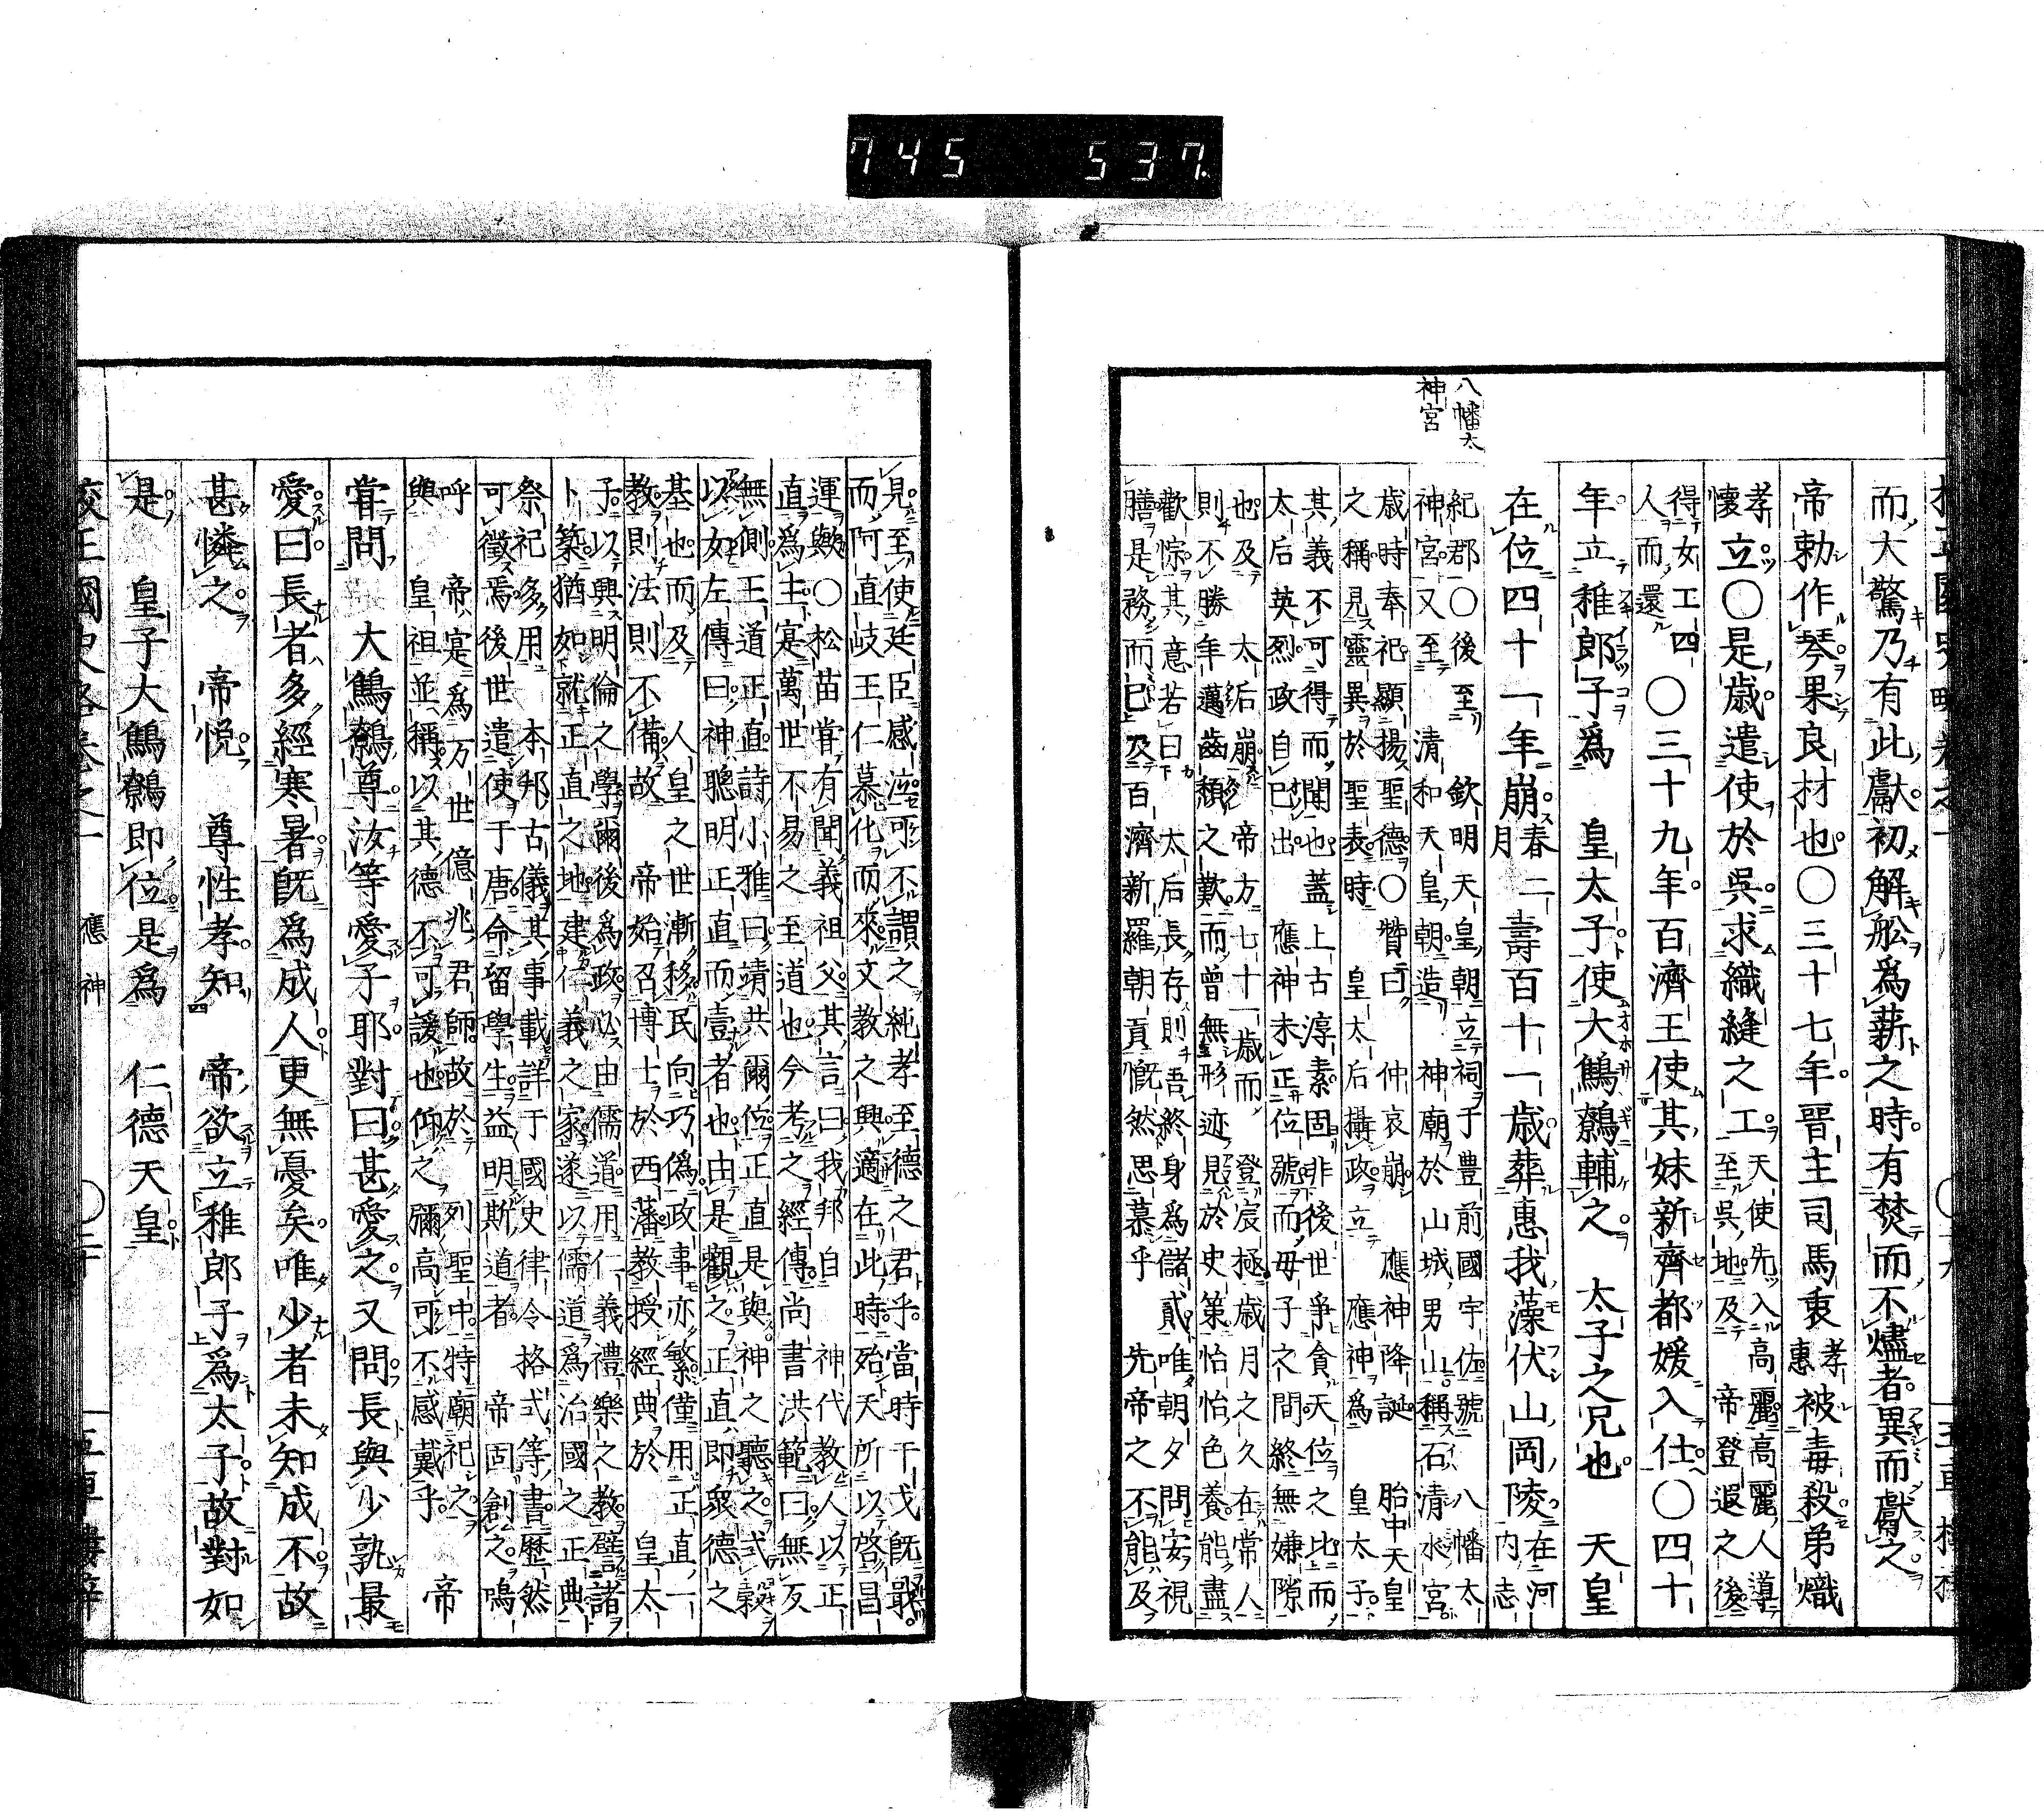 745 537
八幡太
神宮
而大驚乃有此獻初解舩爲薪之時有焚而不燼者異而獻之
帝勅作琴果良材也〇三十七年晋主司馬衷惠
孝
被毒殺弟熾
孝
懷
立〇是歳遣使於呉求織縫之工
天使先入高麗高麗人導
至呉地及 帝登遐之後
得女工四
人而還
〇三十九年百濟王使其妹新齊都媛入仕〇四十
年立稚郎子爲 皇太子使大鷦鷯輔之 太子之兄也 天皇
在位四十一年崩
春二
月
壽百十一歳葬惠我藻伏山岡陵
在河
内志
紀郡〇後至 欽明天皇朝立祠于豊前國宇佐號 八幡太
神宮又至 清和天皇朝造 神廟於山城男山稱石清水宮
歳時奉祀顯揚聖德〇贊曰 仲哀崩 應神降誕 胎中天皇
之稱見靈異於聖表時 皇太后攝政立 應神爲 皇太子
其義不可得而聞也蓋上古淳素固非後世爭貪天位之比而
太后英烈政自已出 應神未正位號而毋子之間終無嫌隙
也及 太后崩 帝方七十一歳而 登宸極歳月之久在常人
則不勝年邁齒頽之歎而曾無形迹見於史策怡怡色養能盡
歡悰其意若曰 太后長存則吾終身爲儲貳唯朝夕問安視
膳是務而已及百濟新羅朝貢慨然思慕乎 先帝之不能及
見至使廷臣感泣可不謂之純孝至德之君乎當時干戈既戢
而阿直岐王仁慕化而來文教之興適在此時殆天所以啓昌
運歟〇松苗甞有聞義祖父其言曰我邦自 神代教人以正
直爲主寔萬世不易之至道也今考之經傳尚書洪範曰無反
無側王道正直詩小雅曰靖共爾位正直是與神之聽之式穀
以女左傳曰神聰明正直而壹者也由是觀之正直即衆德之
基也而及 人皇之世漸移民向巧僞政事亦繁僅用正直一
教則法則不備故 帝始召博士於西藩教授經典於 皇太
子以興明倫之學爾後爲政必由儒道用仁義禮樂之教譬諸
卜築猶如就正直之地建仁義之家遂以儒道爲治國之正典
祭祀多用 本邦古儀其事載詳于國史律令格式等書歴然
可徴焉後世遣使于唐命留學生益明斯道者 帝固創之嗚
呼 帝寔爲万世億兆君師故於 列聖中特廟祀之 帝
與 皇祖並稱以其德不可諼也仰之彌高可不感戴乎
甞問 大鷦鷯尊汝等愛子耶對曰甚愛之又問長與少孰最
愛曰長者多經寒暑既爲成人更無憂矣唯少者未知成不故
甚憐之 帝悦 尊性孝知 帝欲立稚郎子爲太子故對如
是 皇子大鷦鷯即位是爲 仁德天皇
應神